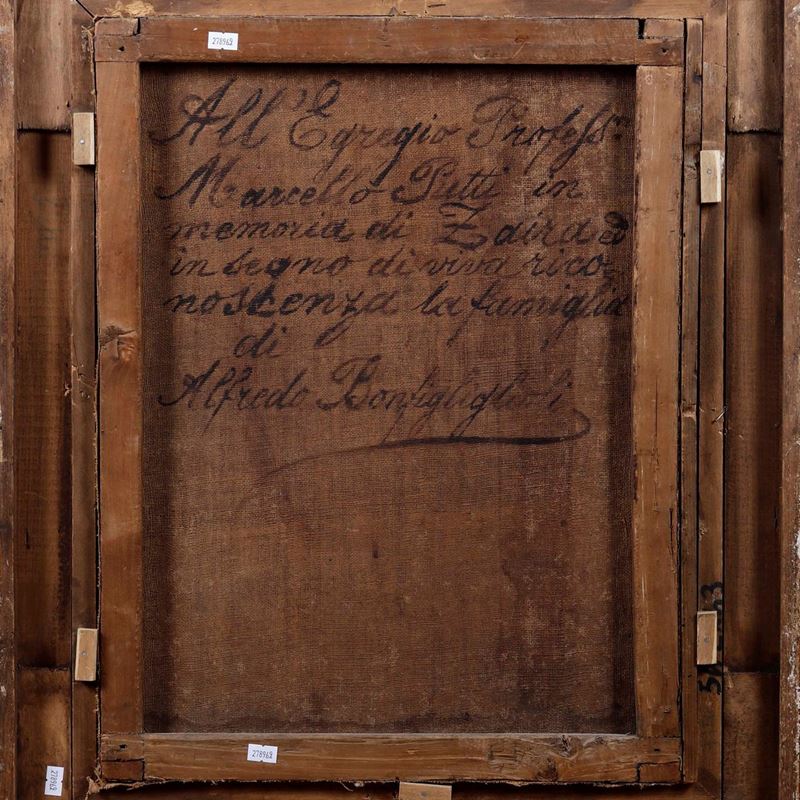 278963
All'Egregio Profess.r
Marcello Putti in
memoria di Zaira ed
in segno di viva rico-
noscenza la famiglia
di
Alfredo Bonfiglioli
278963
278963